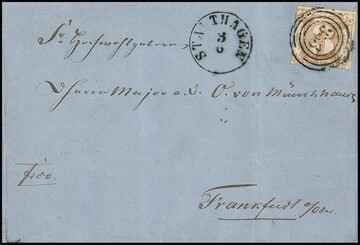 STADTHAGEN
3
6
Sr Hochwohlgeboren
Herrn Major a. D. O. von Münchhausen
frco.
Frankfurt a/Oder